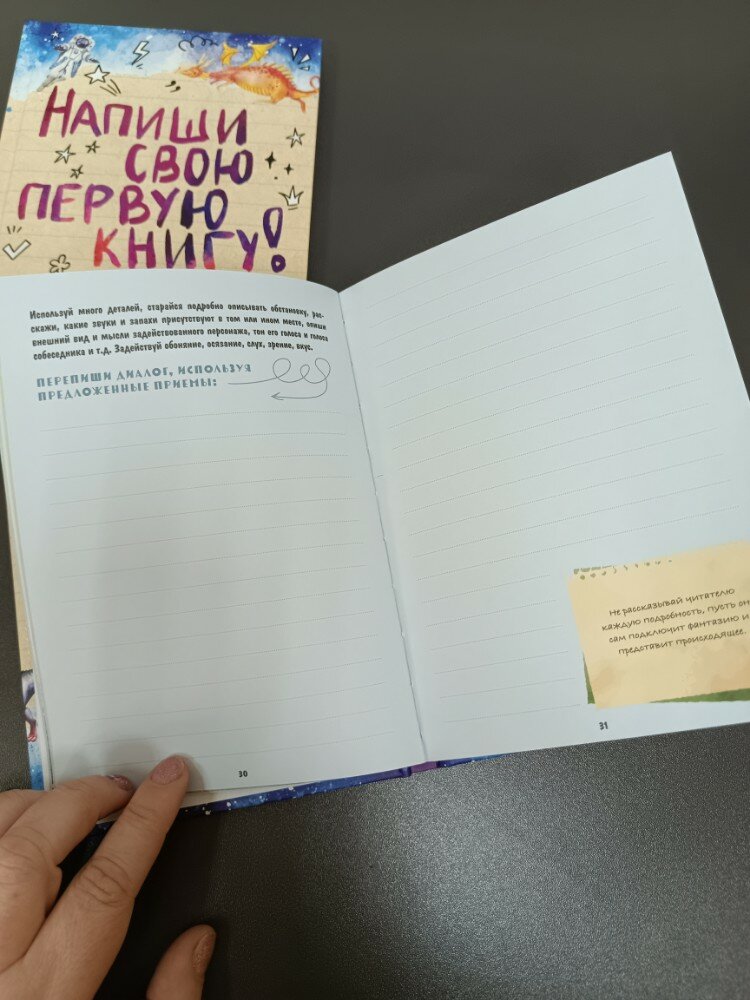 НАПИШИ
СВОЮ
ПЕРВУЮ
КНИГУ!
Используй много деталей, старайся подробно описывать обстановку, рас-
скажи, какие звуки и запахи присутствуют в том или ином месте, опиши
внешний вид и мысли задействованного персонажа, тон его голоса и голоса
собеседника и т.д. Задействуй обоняние, осязание, слух, зрение, вкус.
ПЕРЕПИШИ ДИАЛОГ, ИСПОЛЬЗУЯ
ПРЕДЛОЖЕННЫЕ ПРИЕМЫ:
30
Не рассказывай читателю
каждую подробность, пусть он
сам подключит фантазию и
представит происходящее.
31